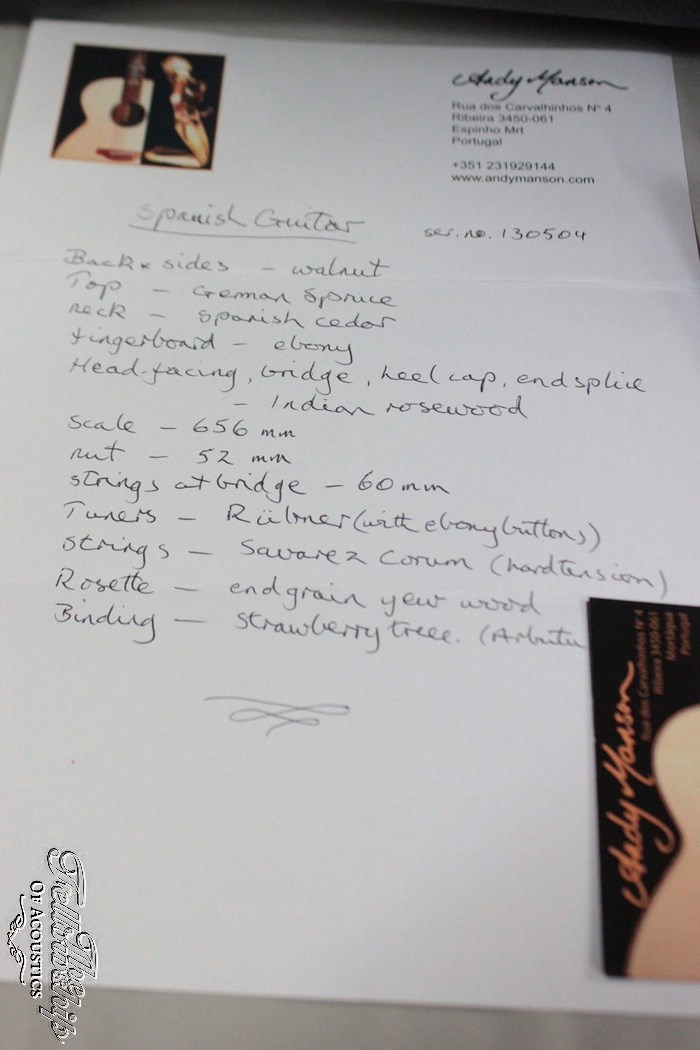 Andy Manson
Rua dos Carvalhinhos Nº 4
Ribeira 3450-061
Espinho Mrt
Portugal
+351 231929144
www.andymanson.com
Spanish Guitar
ser.no. 130504
Back & sides – walnut
Top – German Spruce
neck – Spanish cedar
fingerboard – ebony
Head-facing, bridge, heel cap, end splice
– Indian rosewood
scale – 656 mm
nut – 52 mm
strings at bridge – 60 mm
Tuners – Rübner (with ebony buttons)
strings – Savarez Corum (hard tension)
Rosette – endgrain yew wood
Binding – strawberry treee. (Arbutu
Andy Manson
Rua dos Carvalhinhos Nº 4
Ribeira 3450-061
Mortágua
Portugal
The
Fellowship
Of Acoustics